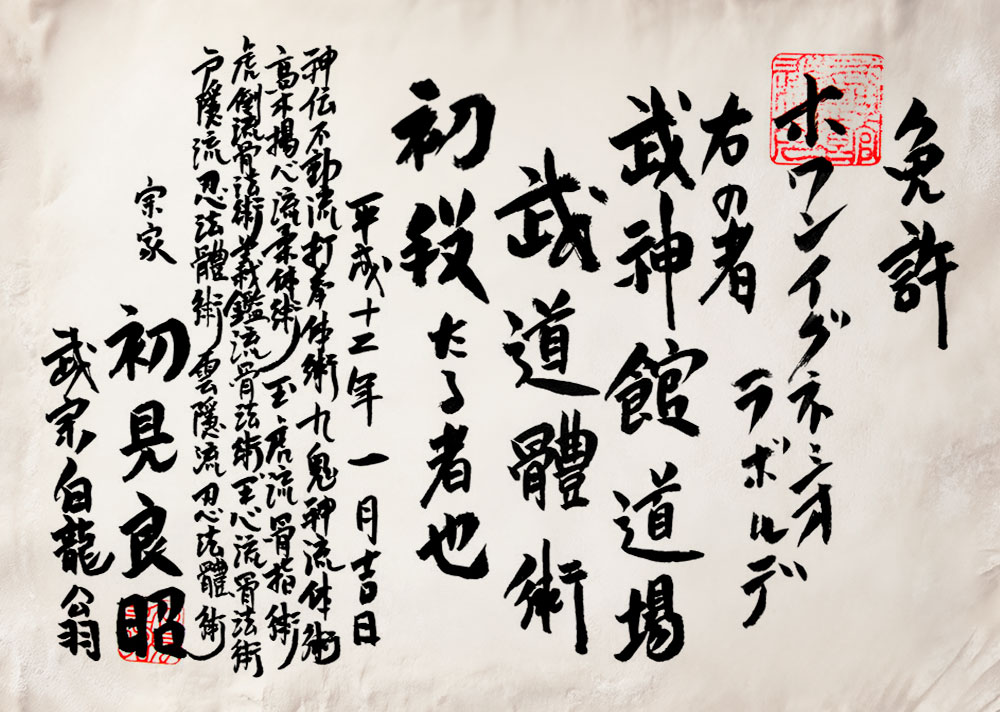 免許
ホワンイグネシオ
ラボルデ
右の者
武神館道場
武道體術
初段たる者也
平成十二年一月吉日
神伝不動流打拳体術九鬼神流体術
高木揚心流柔体術玉虎流骨指術
虎倒流骨法術義鑑流骨法術玉心流骨法術
戸隠流忍法體術雲隠流忍法體術
宗家
初見良昭
武宗白龍翁